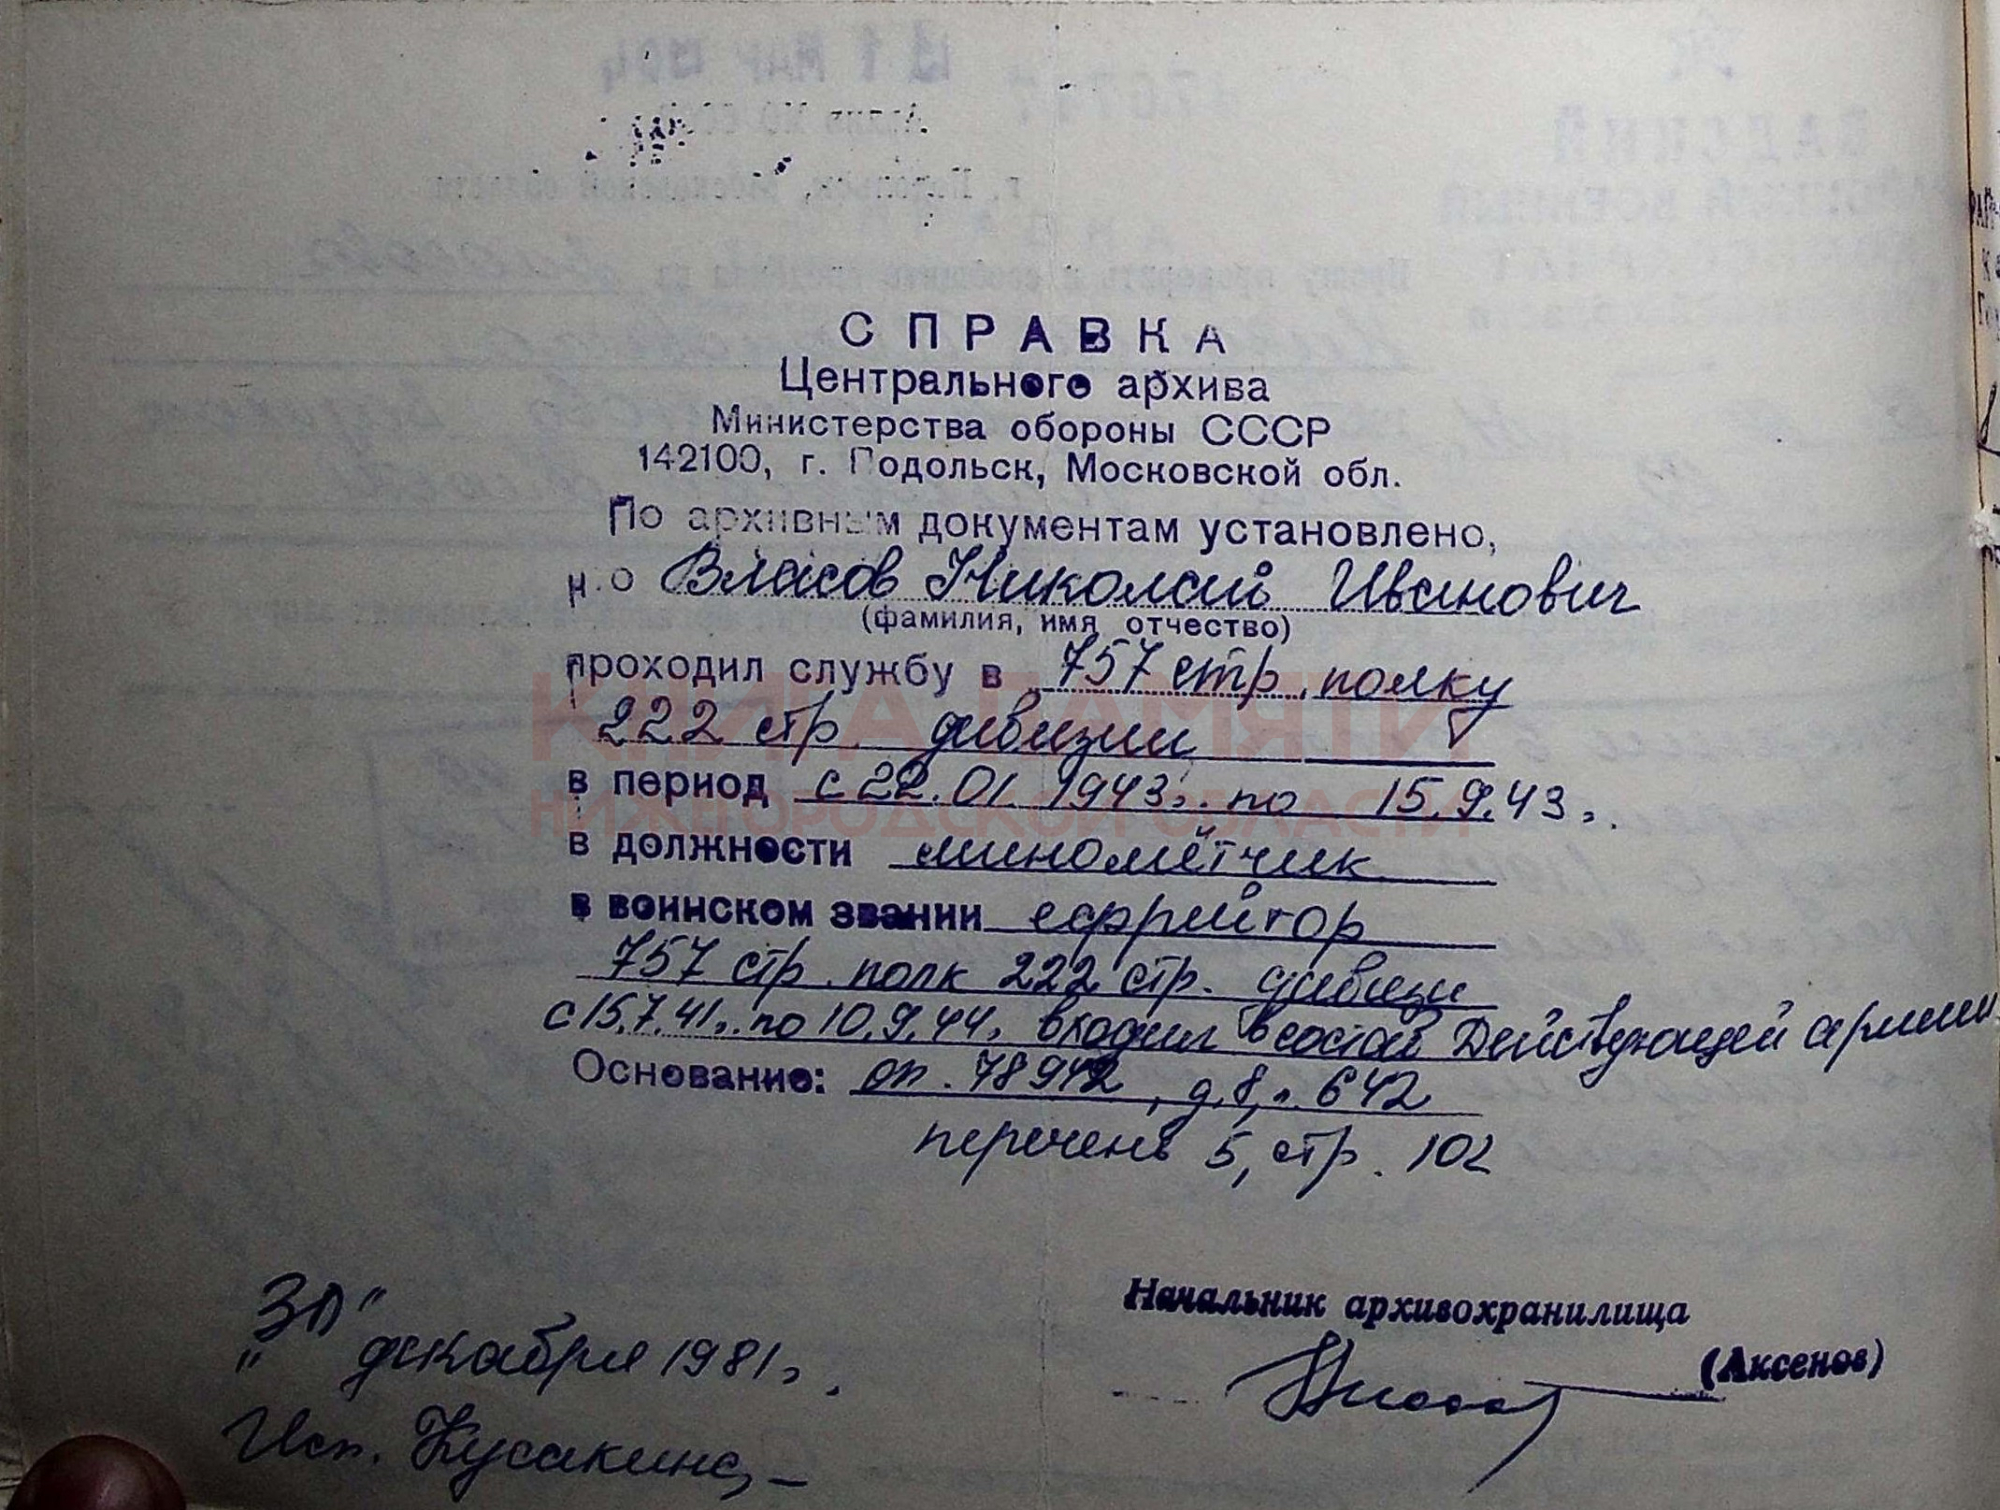 СПРАВКА
Центрального архива
Министерства обороны СССР
142100, г. Подольск, Московской обл.
По архивным документам установлено,
Власов Николай Иванович
(фамилия, имя отчество)
проходил службу в 757 стр. полку
222 стр. дивизии
в период с 22.01.1943г. по 15.9.43г.
в должности миномётчик
в воинском звании ефрейтор
757 стр. полк 222 стр. дивизи
с 15.7.41г. по 10.9.44г. входил в состав Действующей армии
Основание: оп. 78942, д.8, л. 642
перечень 5, стр. 102
Начальник архивохранилища
(Аксенов)
"30" декабря 1981г.
Исп. Кусакина
КНИГА ПАМЯТИ
НИЖЕГОРОДСКОЙ ОБЛАСТИ